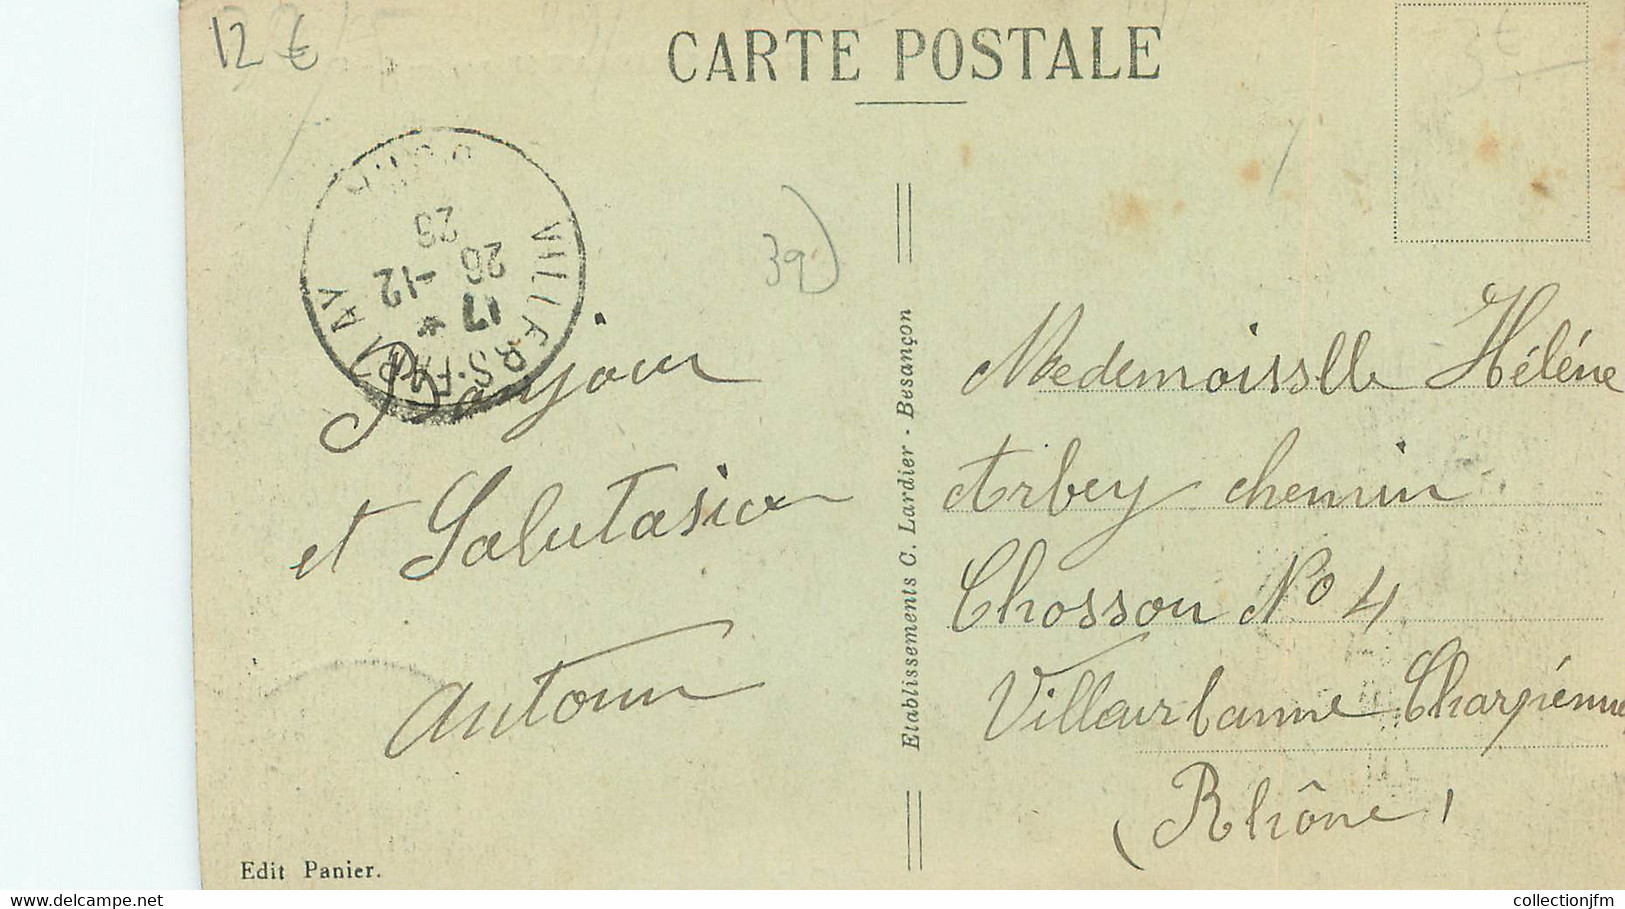 12 €
CARTE POSTALE
3€
VILLERS-FARLAY
JURA
17 *
26 -12
23
39)
Bonjour
et Salutasion
Antonin
Medemoisslle Hélène
Arbey chemin
Chosson No 4
Villeurbanne Charpénne
(Rhône)
Etablissements C. Lardier - Besançon
Edit Panier.
www.delcampe.net
collectionjfm